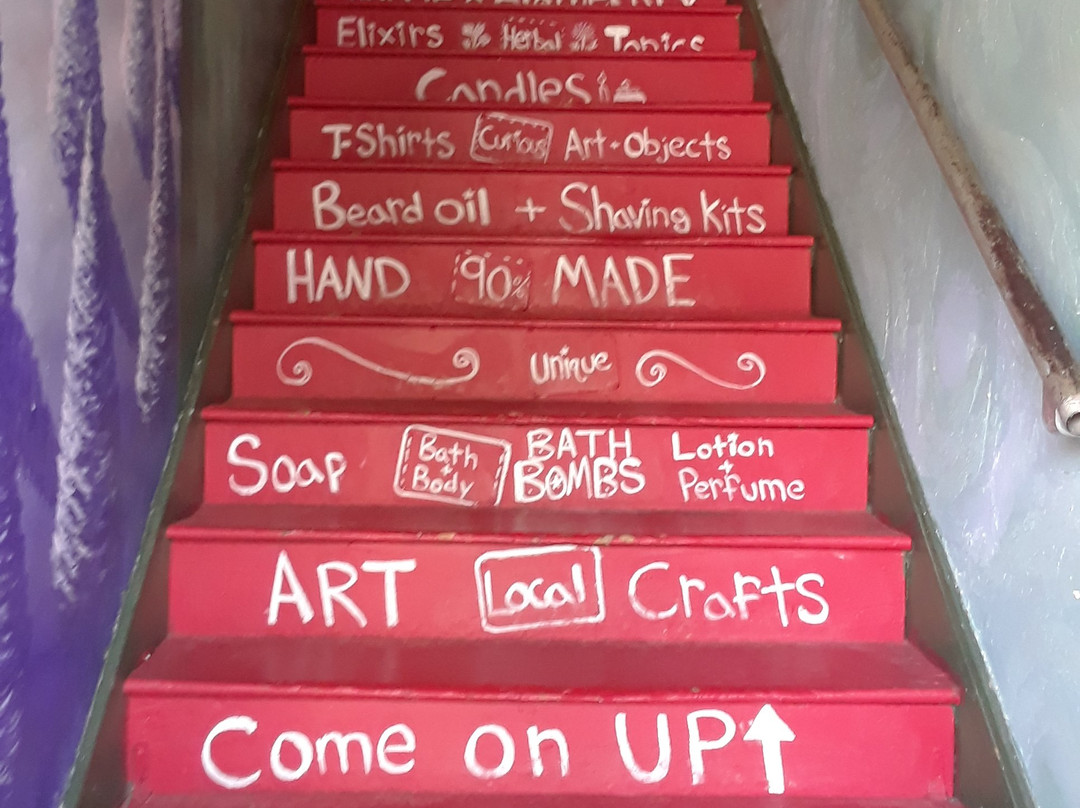 Elixirs Herbal Tonics
Candles
T-Shirts Curious Art-Objects
Beard oil + Shaving Kits
HAND 90% MADE
Unique
Soap Bath + Body BATH BOMBS Lotion + Perfume
ART Local Crafts
Come on UP↑